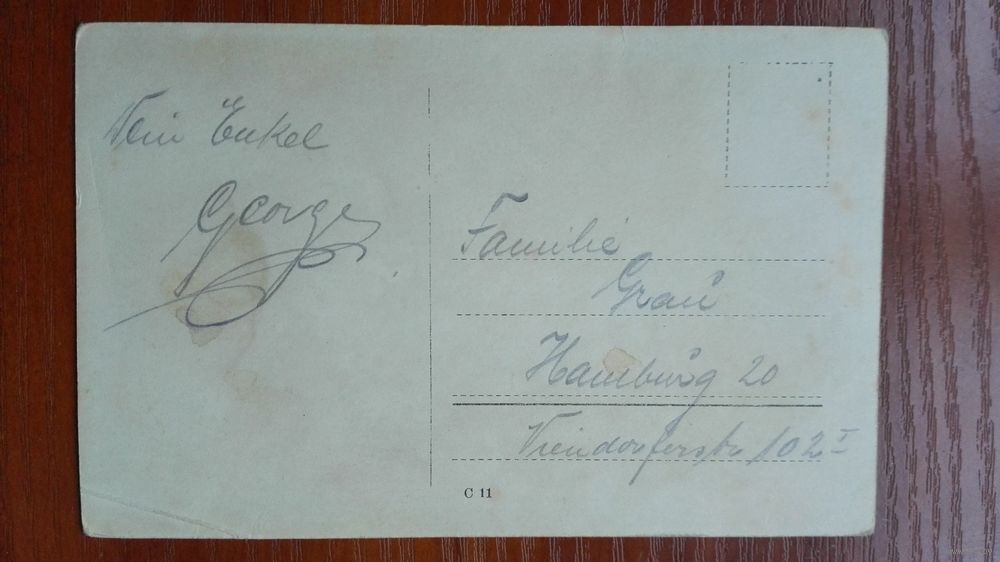 Mein Enkel
George
Familie
Grau
Hamburg 20
102 I
C 11